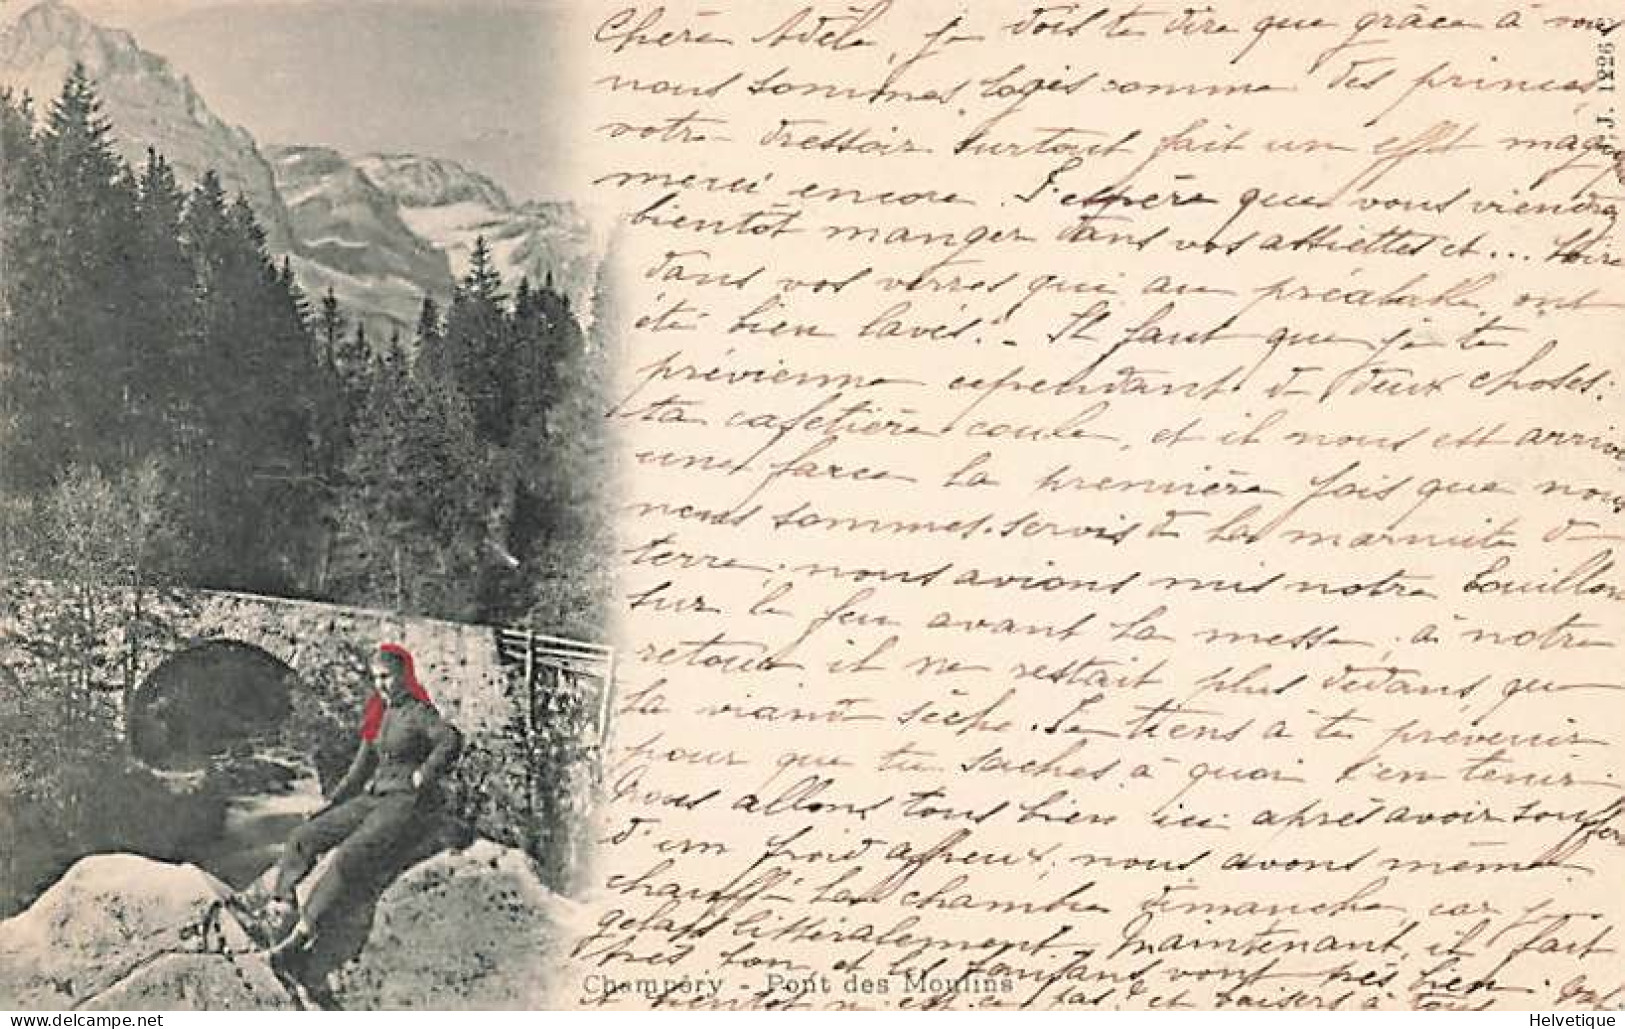 Chère Adèle, je dois te dire que grâce à vous
nous sommes logés comme des princes,
votre dressoir surtout fait un effet
merci encore. J'espère que vous viendrez
bientôt manger dans vos assiettes et... boire
dans vos verres qui au préalable ont
été bien lavés! - Il faut que je te
prévienne cependant de deux choses:
ta cafetière coule, et il nous est arrivé
une farce la première fois que nous
nous sommes servis de la marmite de
terre; nous avions mis notre bouillon
sur le feu avant la messe, à notre
retour il ne restait plus dedans que
la viande sèche. Je tiens à te prévenir
pour que tu saches à quoi t'en tenir.
Nous allons tous bien ici après avoir souffert
d'un froid affreux; nous avons même
chauffé la chambre dimanche, car je
gelais littéralement. Maintenant, il fait
très bon et les enfants vont très bien.
A bientôt n'est-ce pas? et baisers à tous
Champéry - Pont des Moulins
J.J. 1226
Helvetique